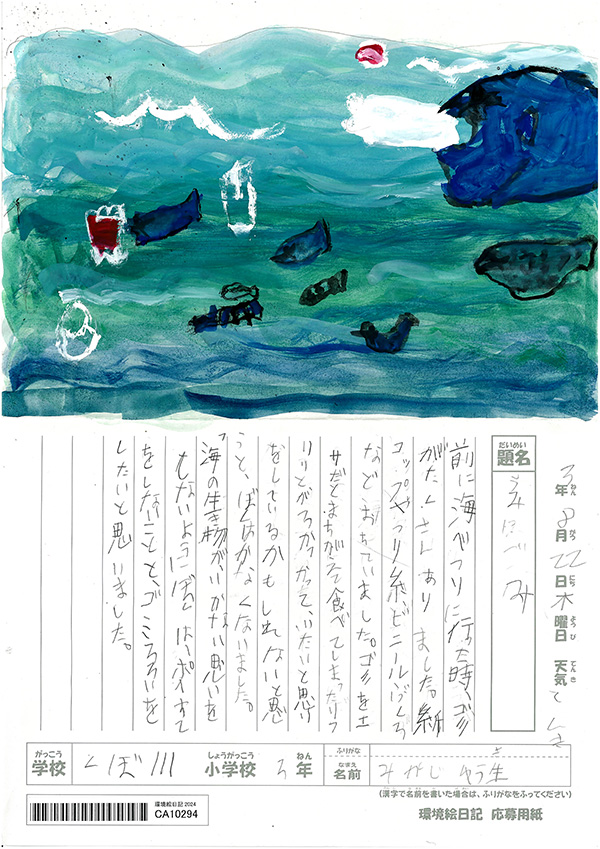 3年8月22日木曜日 天気
ねん がつ にち ようび てんき
だいめい
題名
前に海べつりに行った時、ゴミ
がたくさんありました。紙
コップやつり糸、ビニールぶくろ
などおちていました。ゴミをエ
サだとまちがえて食べてしまったりつ
りいとが って、いたいと思け
をしているかもしれないと思
うと、ぼくはかなしくなりました。
海の生き物がいかない思いを
もないようにぼくは、ポイすて
をしないことと、ゴミひろいを
したいと思いました。
がっこう しょうがっこう ねん
学校 くぼ川 小学校 3年
ふりがな
なまえ
名前 生
(漢字で名前を書いた場合は、ふりがなをふってください)
環境絵日記 応募用紙
環境絵日記 2024
CA10294